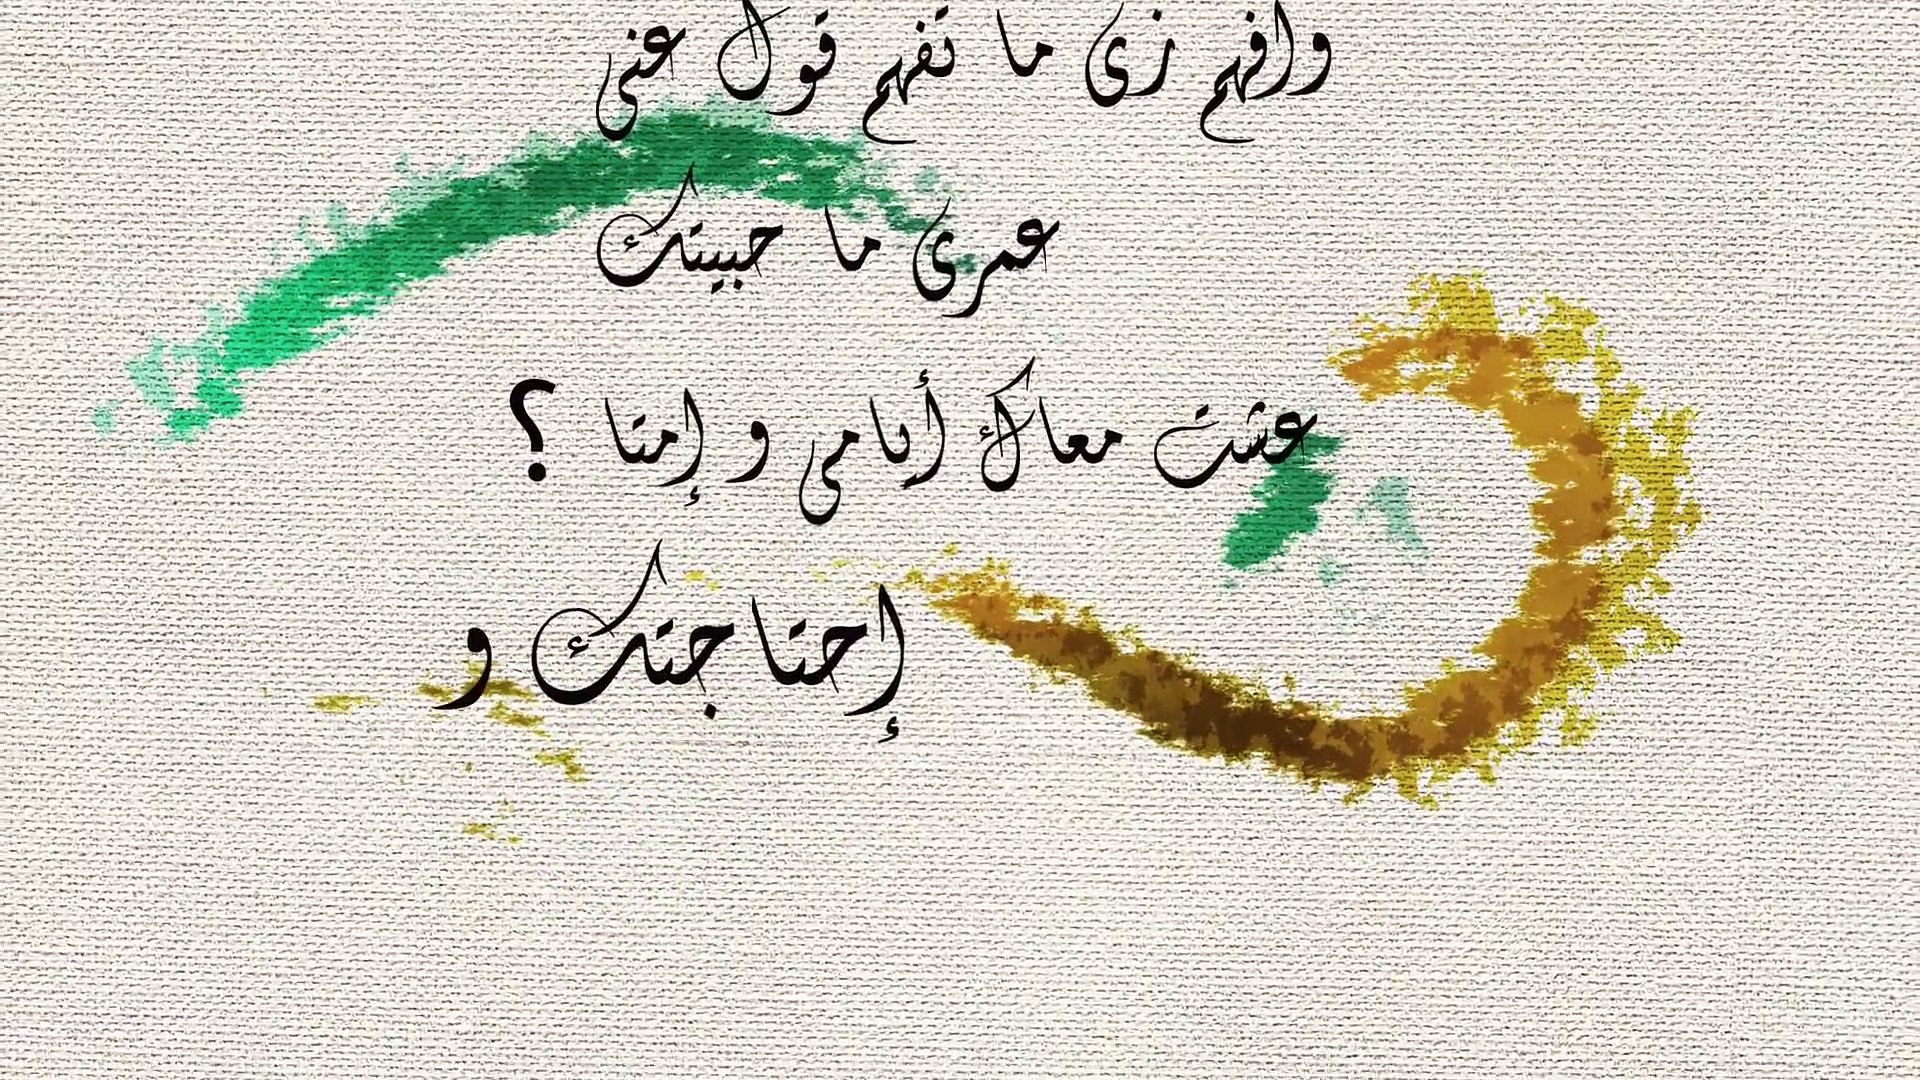 وافهم زى ما تفهم قول عنى
عمرى ما حبيتك
عشت معاك أيامى و إمتا ؟
إحتاجتك و